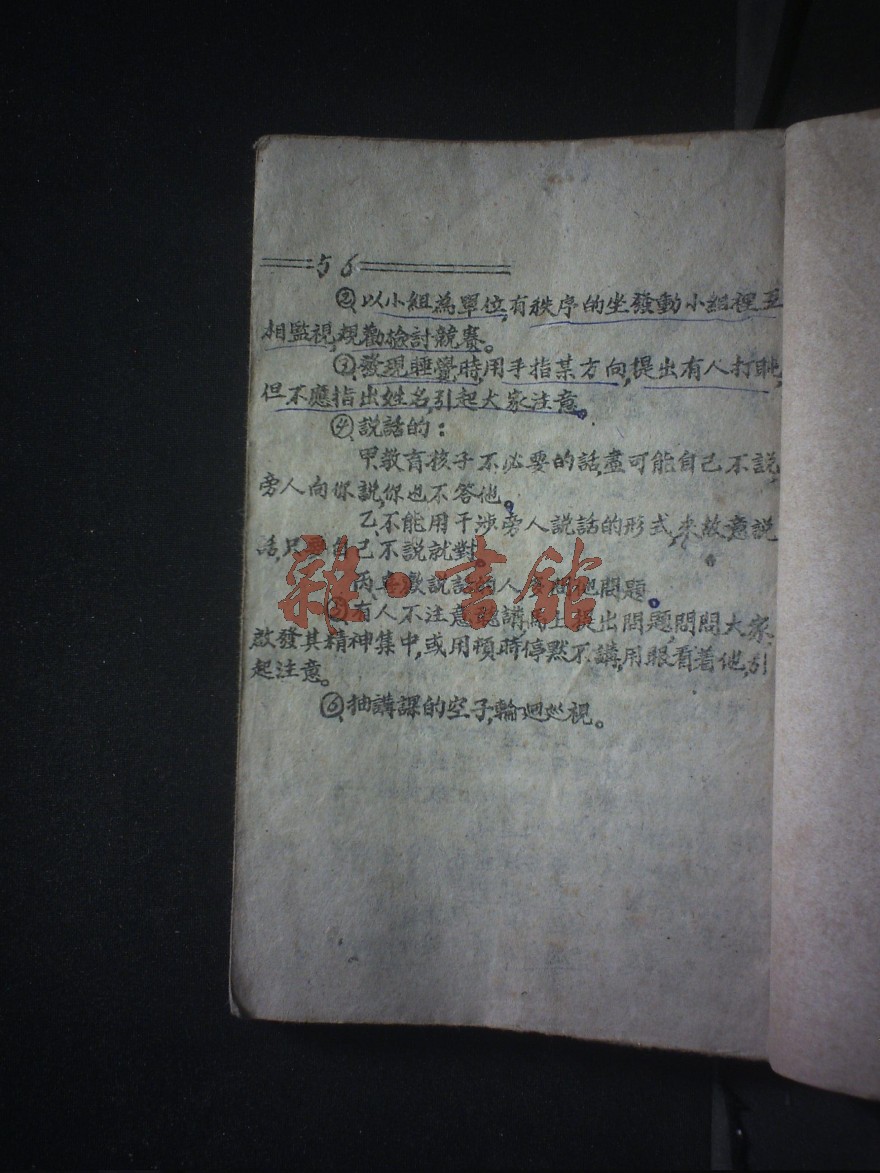 56
②以小組為單位,有秩序的坐發動小組裡互
相監視,規勸檢討競賽。
③發現睡覺時,用手指某方向,提出有人打盹,
但不應指出姓名,引起大家注意。
④說話的:
甲.教育孩子不必要的話,盡可能自己不說,
旁人向你說,你也不答他。
乙.不能用干涉旁人說話的形式,來故意說
話,只要自己不說就對。
丙.喜歡說話的人多問他問題。
⑤有人不注意聽講,馬上提出問題問問大家,
啟發其精神集中,或用頓時停默不講,用眼看着他,引
起注意。
⑥抽講課的空子,輪迴巡視。
雜·書館